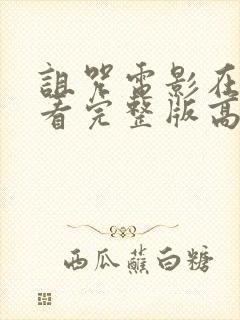 詛咒電影在
看完整版高
西瓜蘸白糖